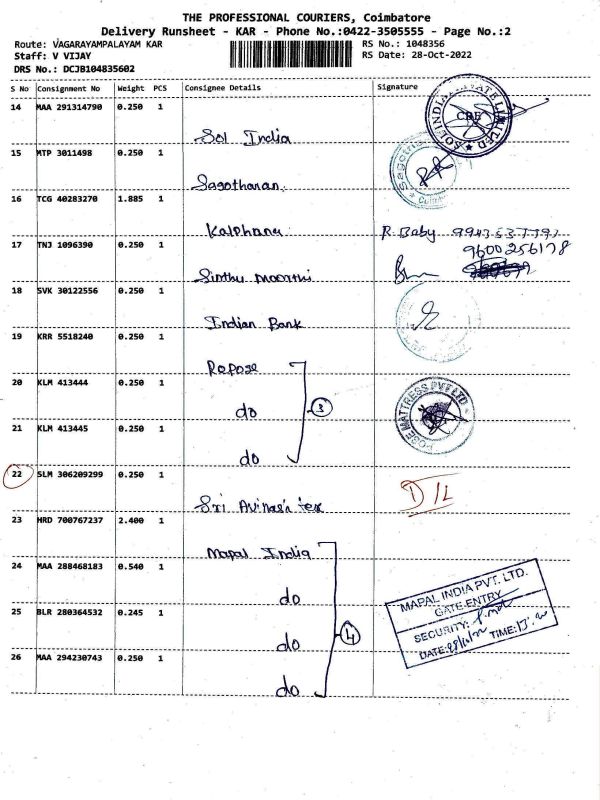 THE PROFESSIONAL COURIERS, Coimbatore
Delivery Runsheet - KAR - Phone No.:0422-3505555 - Page No.:2
Route: VAGARAYAMPALAYAM KAR
RS No.: 1048356
Staff: V VIJAY
RS Date: 28-Oct-2022
DRS No.: DCJB104835602
S No Consignment No Weight PCS Consignee Details Signature
14 MAA 291314790 0.250 1
Sol India
SOL INDIA PRIVATE LIMITED
CBE
15 MTP 3011498 0.250 1
Sagotharan
16 TCG 40283270 1.885 1
Kalphana
R. Baby
17 TNJ 1096390 0.250 1
9600256178
Sinthu moorthi
18 SVK 30122556 0.250 1
Indian Bank
19 KRR 5518240 0.250 1
Repose
20 KLM 413444 0.250 1
do 3
21 KLM 413445 0.250 1
do
22 SLM 306209299 0.250 1
Sri Avinash tex
D/L
23 HRD 700767237 2.400 1
Mapal India
24 MAA 288468183 0.540 1
do
MAPAL INDIA PVT. LTD.
GATE ENTRY
25 BLR 280364532 0.245 1
do 4
SECURITY:
DATE: TIME:
26 MAA 294230743 0.250 1
do